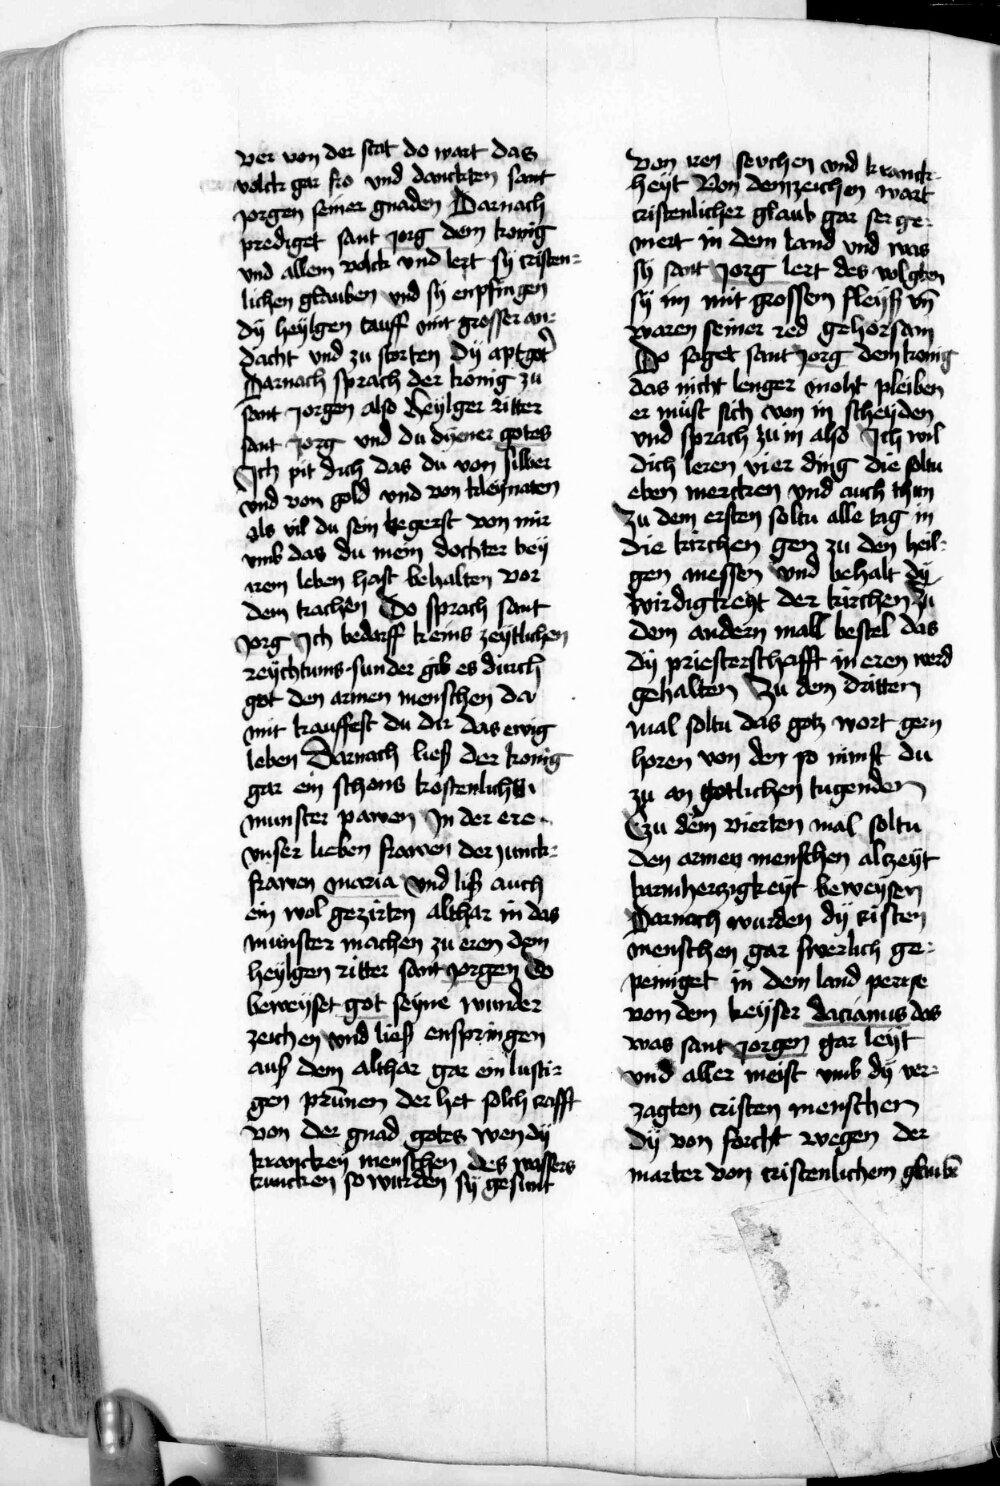 ver von der stat do wart das
volck gar fro vnd danckten sant
jorgen seiner gnaden Darnach
prediget sant jorg dem konig
vnd allem volck vnd lert sy cristen-
lichen glauben vnd sy enpfingen
dy heylgen tauff mit grosser an-
dacht vnd zu storten dy aptgot
Darnach sprach der konig zu
sant jorgen also heylger ritter
sant jorg vnd du dyener gotes
Ich pit dich das du von silber
vnd von gold vnd von kleynaten
als vil du sein begerst von mir
vmb das du mein dochter bey
irem leben hast behalten vor
dem trachen Do sprach sant
jorg Ich bedarff keins zeytlichen
reychtums sunder gib es durch
got den armen menschen da
mit kauffest du dir das ewig
leben Darnach ließ der konig
gar ein schons kostenlichs
munster pawen In der ere
vnser lieben frawen der junck-
frawen maria vnd liß auch
ein wol gezirten althar in das
munster machen zu eren dem
heylgen ritter sant jorgen Do
beweyset got seyne wunder
zeichen vnd ließ enspringen
auß dem althar gar ein lusti-
gen prunen der het solch crafft
von der gnad gotes wen dy
kranckey menschen des wassers
truncken so wurden sy gesunt
von iren seuchen vnd kranck-
heyt Von dem zeichen wart
cristenlicher glaub gar ser ge-
mert in dem land vnd was
sy sant jorg lert des volgten
sy im mit grossem fleyß vn̄
waren seiner red gehorsam
Do saget sant jorg dem konig
das nicht lenger moht pleiben
er must sich von in scheyden
vnd sprach zu im also Ich wil
dich leren vier ding die soltu
eben mercken vnd auch thun
Zu dem ersten soltu alle tag in
die kirchen gen zu den heil-
gen messen vnd behalt dy
wirdigkeyt der kirchen Zu
dem andern mall bestel das
dy priesterschafft in eren werd
gehalten Zu dem dritten
mal soltu das gotz wort gern
horen von den so nimst du
zu an gotlichen tugenden
Czu dem vierten mal soltu
den armen menschen alzeyt
barmherzigkeyt beweysen
Darnach wurden dy cristen
menschen gar swerlich ge-
peiniget in dem land perse
von dem keyser dacianus das
was sant jorgen gar leyt
vnd aller meist vmb dy ver-
zagten cristen menschen
dy von forcht wegen der
marter von cristenlichem glaubē